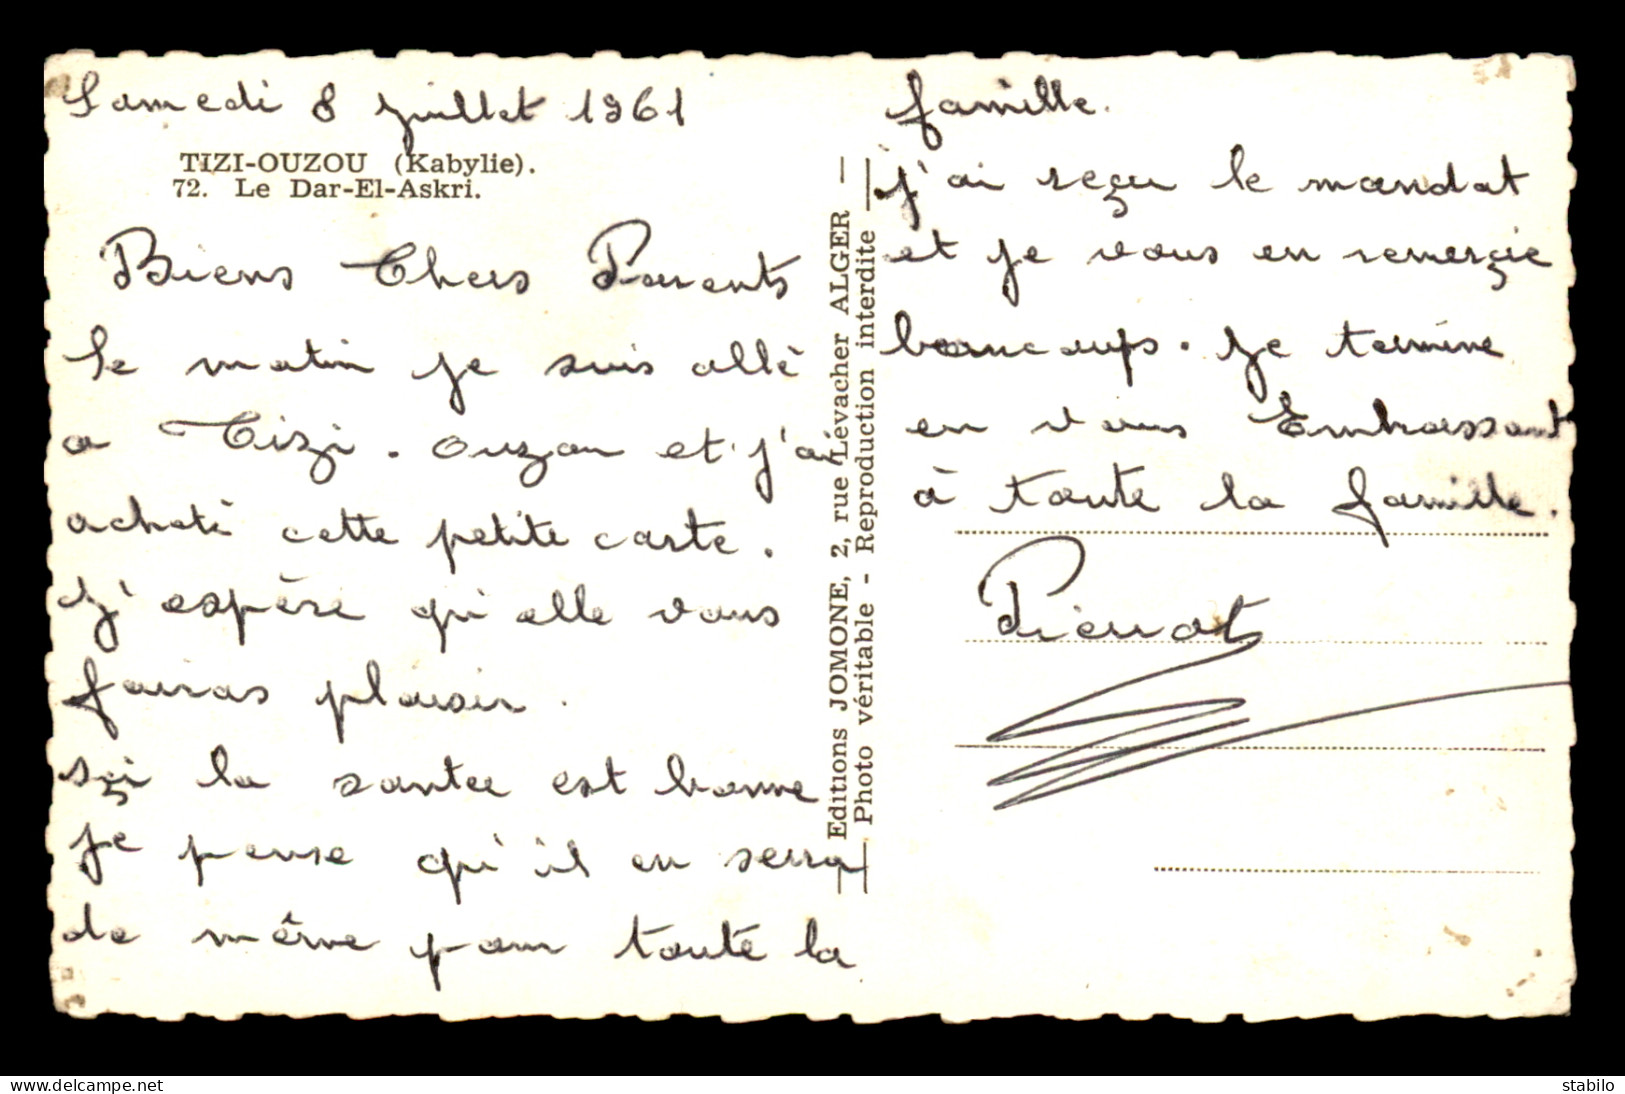 Samedi 8 Juillet 1961
TIZI-OUZOU (Kabylie).
72. Le Dar-El-Askri.
Biens Chers Parents
le matin je suis allé
a Tizi. Ouzou et j'ai
acheté cette petite carte.
J'espère qu'elle vous
fairas plaisir.
Içi la santee est bonne
je pense qu'il en serra
de même pour toute la
Editions JOMONE, 2, rue Lévacher ALGER
Photo véritable - Reproduction interdite
famille.
J'ai reçu le mandat
et je vous en remerçie
beaucoups. Je termine
en vous Embrassant
à toute la famille.
Pierrot
delcampe.net
stabilo